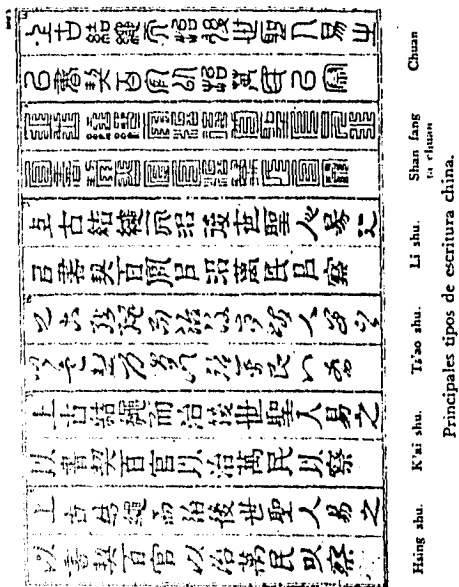 上古結繩而治後世聖人易之
以書契百官以治萬民以察
上古結繩而治後世聖人易之
以書契百官以治萬民以察
上古結繩而治後世聖人易之
以書契百官以治萬民以察
上古結繩而治後世聖人易之
以書契百官以治萬民以察
上古結繩而治後世聖人易之
以書契百官以治萬民以察
上古結繩而治後世聖人易之
以書契百官以治萬民以察
Hsing shu. K'ai shu. Ts'ao shu. Li shu. Shan fang ta chuan Chuan
Principales tipos de escritura china.